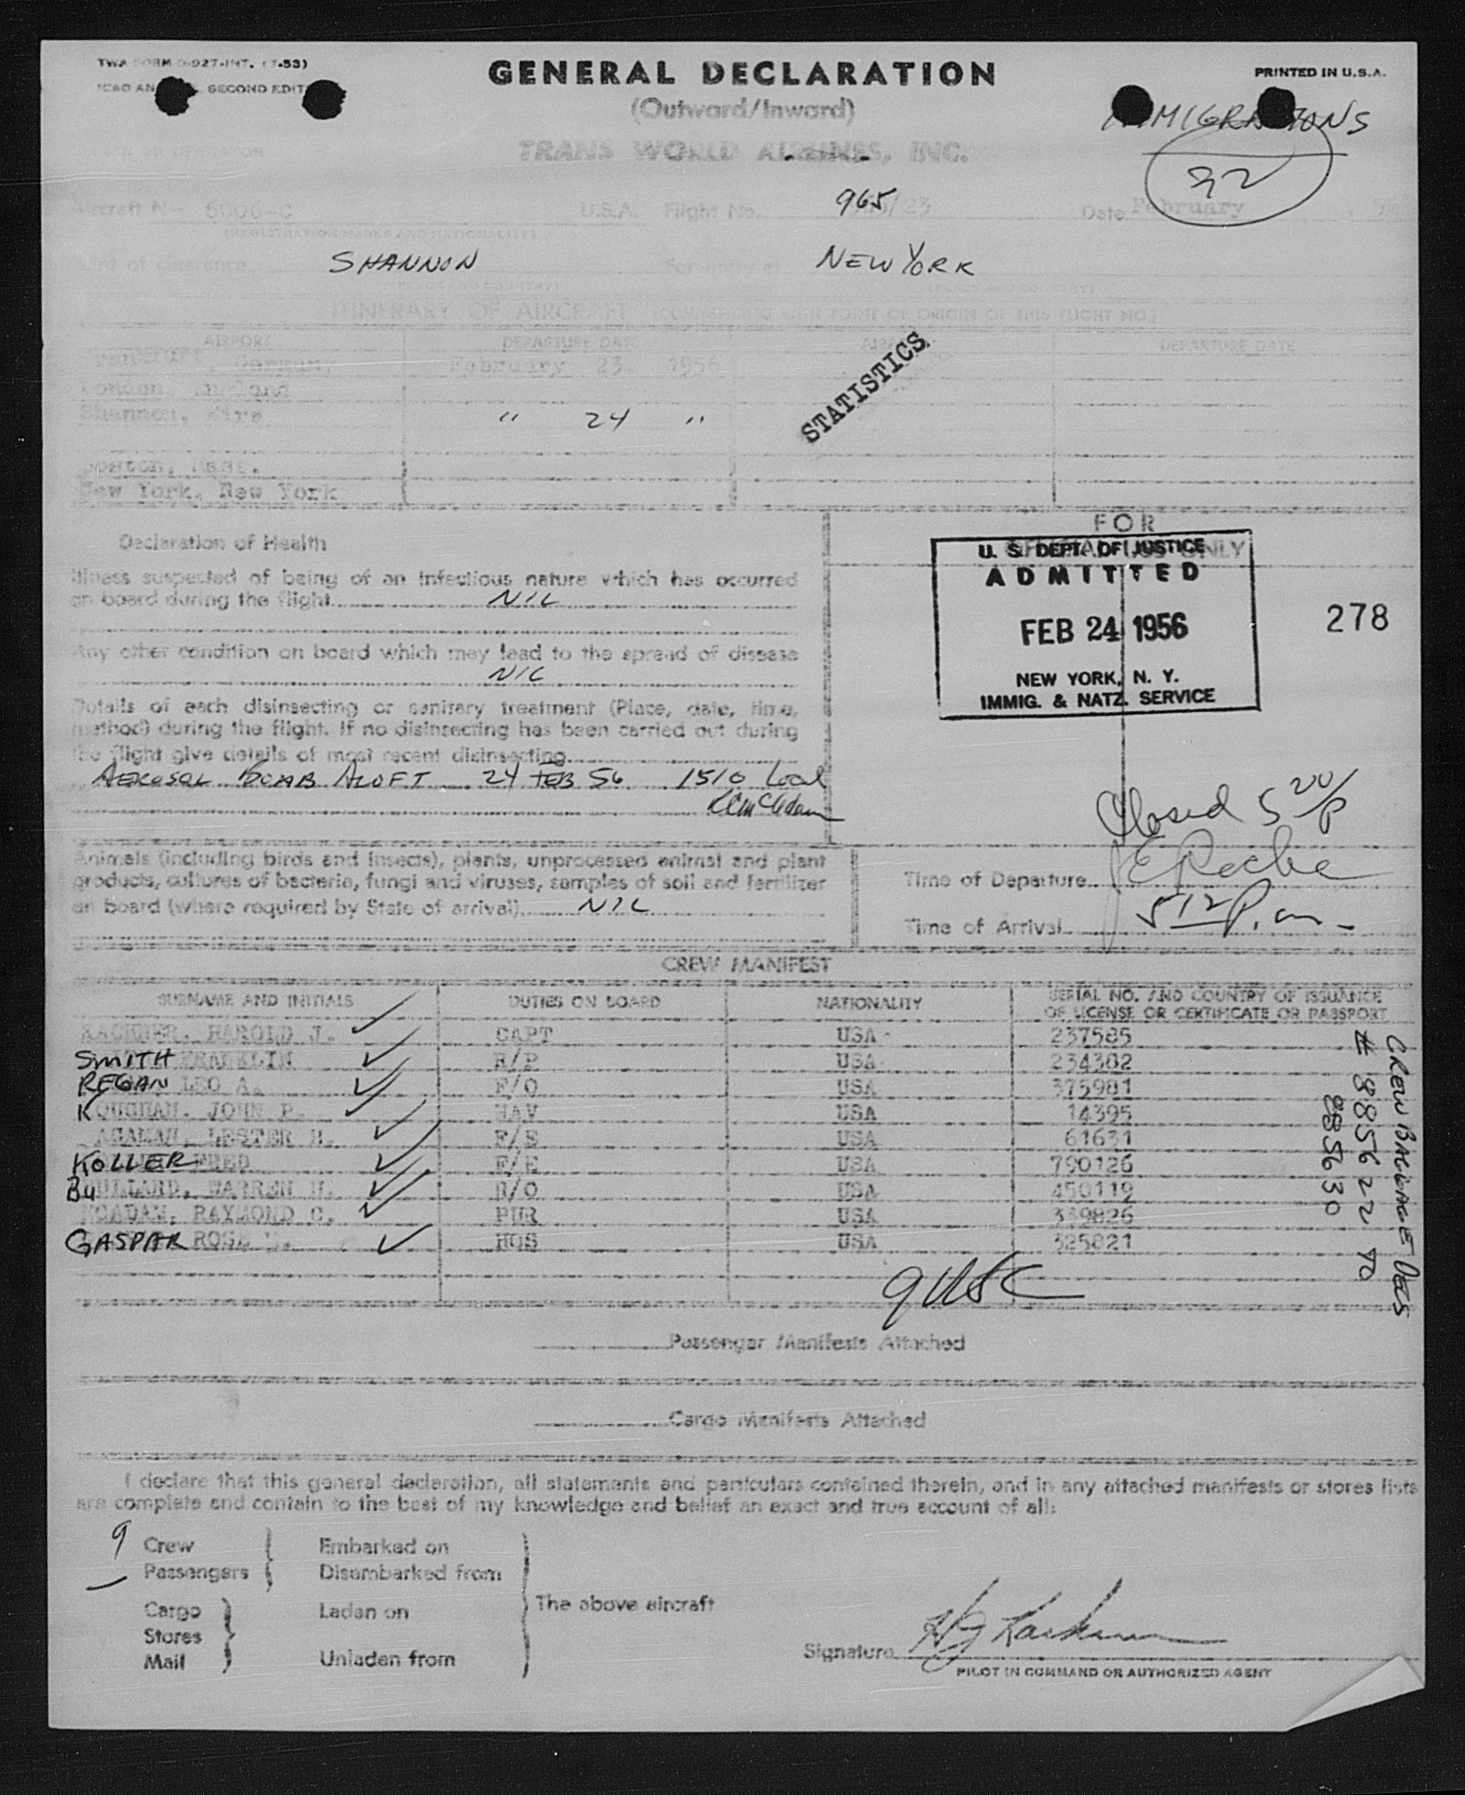 TWA FORM O-927-INT. (7-53)
PRINTED IN U.S.A.
SECOND EDIT
GENERAL DECLARATION
(Outward/Inward)
TRANS WORLD AIRLINES, INC.
IMMIGRATIONS
92
Aircraft N 6006-C U.S.A. Flight No. 965/23 Date February
SHANNON For entry at NEW YORK
ITINERARY OF AIRCRAFT
AIRPORT DEPARTURE DATE DEPARTURE DATE
Frankfurt Germany February 23 1956
London, England
Shannon, Eire " 24 "
STATISTICS
Boston, Mass.
New York, New York
Declaration of Health
Illness suspected of being of an infectious nature which has occurred
on board during the flight NIL
Any other condition on board which may lead to the spread of disease
NIL
Details of each disinsecting or sanitary treatment (Place, date, time,
method) during the flight. If no disinsecting has been carried out during
the flight give details of most recent disinsecting
AEROSOL BOMB ALOFT 24 FEB 56 1510 Local
FOR
OFFICIAL USE ONLY
U. S. DEPT. OF JUSTICE
ADMITTED
FEB 24 1956
NEW YORK, N. Y.
IMMIG. & NATZ. SERVICE
278
Closed 5 20/P
Animals (including birds and insects), plants, unprocessed animal and plant
products, cultures of bacteria, fungi and viruses, samples of soil and fertilizer
on board (where required by State of arrival) NIL
Time of Departure
Time of Arrival 512 P.m.
CREW MANIFEST
SURNAME AND INITIALS DUTIES ON BOARD NATIONALITY SERIAL NO. AND COUNTRY OF ISSUANCE
OF LICENSE OR CERTIFICATE OR PASSPORT
HAROLD J. CAPT USA 237585
SMITH FRANKLIN R/P USA 234302
REGAN LEO A. F/O USA 375981
KOUGHAN, JOHN P. NAV USA 14395
LESTER H. F/E USA 61631
KOLLER FRED F/E USA 790126
BULLARD, WARREN H. R/O USA 450119
MCADAM, RAYMOND C. PUR USA 339826
GASPAR ROSE HOS USA 325821
CREW BAGGAGE DECS
# 8856622 TO
885630
Passenger Manifests Attached
Cargo Manifests Attached
I declare that this general declaration, all statements and particulars contained therein, and in any attached manifests or stores lists
are complete and contain to the best of my knowledge and belief an exact and true account of all:
9 Crew Embarked on
Passengers Disembarked from
The above aircraft
Cargo Laden on
Stores
Mail Unladen from
Signature
PILOT IN COMMAND OR AUTHORIZED AGENT